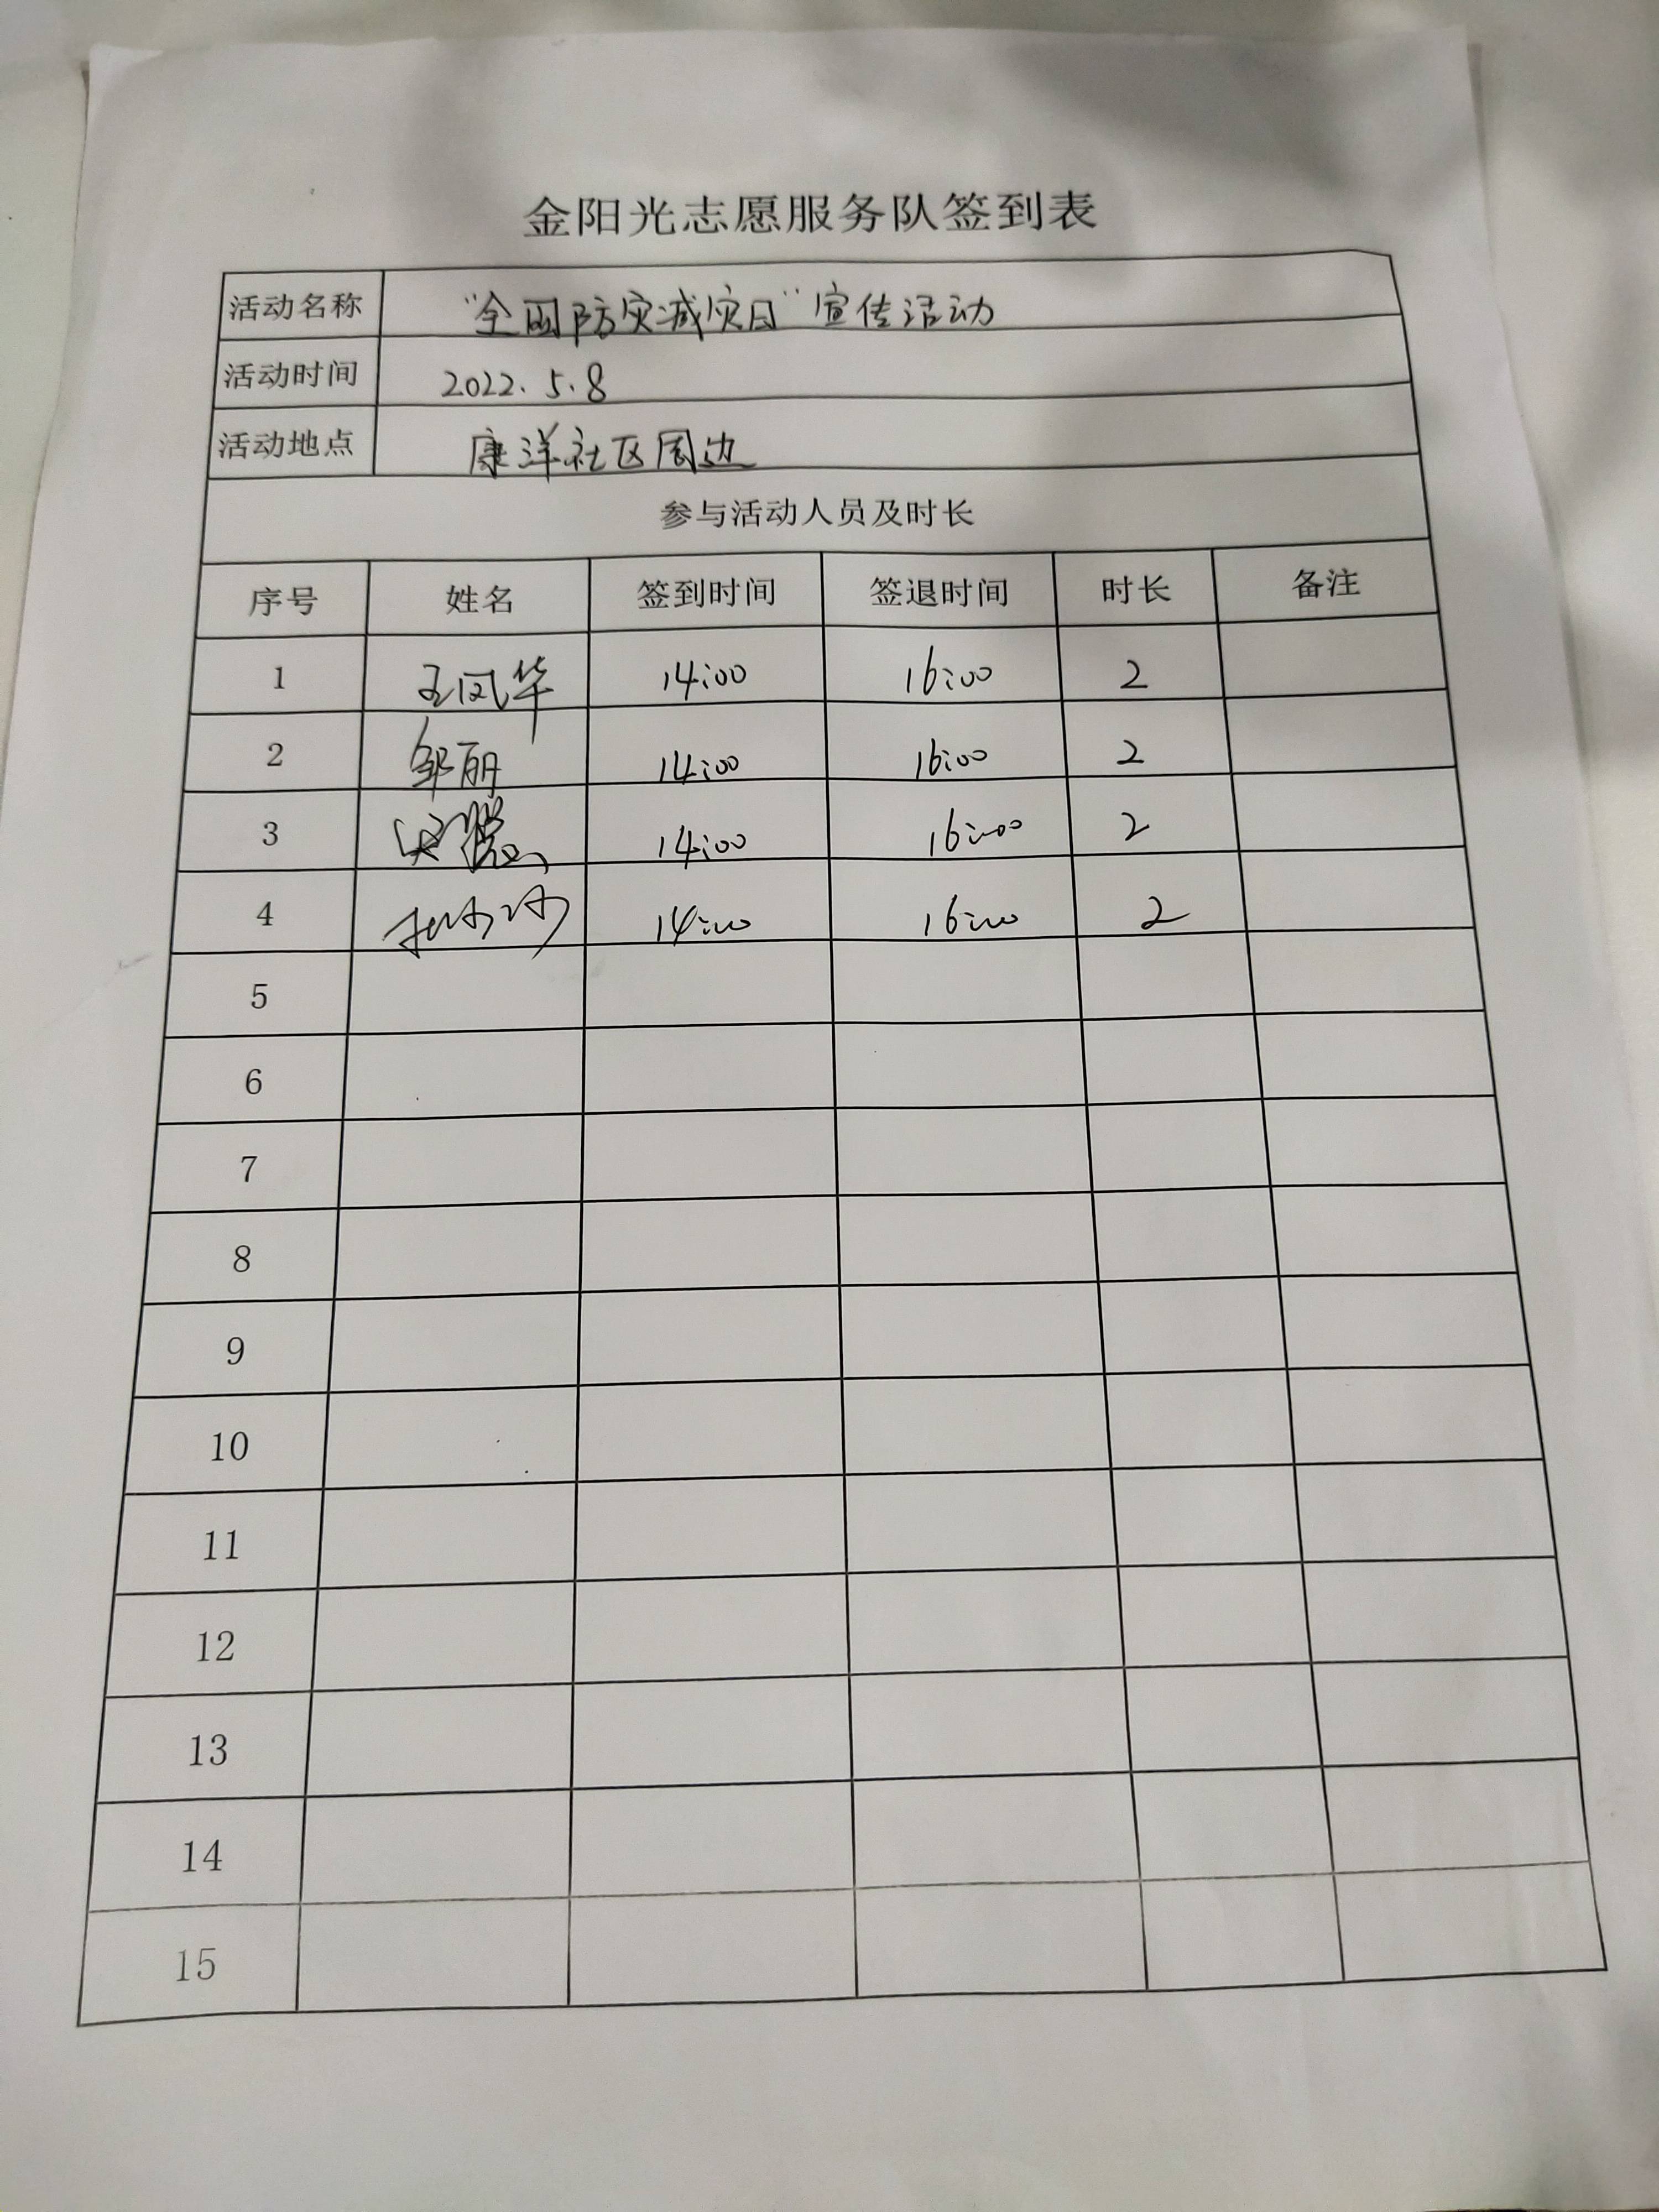 金阳光志愿服务队签到表
活动名称 "全国防灾减灾日"宣传活动
活动时间 2022.5.8
活动地点 康洋社区周边
参与活动人员及时长
序号 姓名 签到时间 签退时间 时长 备注
1 王凤华 14:00 16:00 2
2 邹丽 14:00 16:00 2
3 14:00 16:00 2
4 14:00 16:00 2
5
6
7
8
9
10
11
12
13
14
15